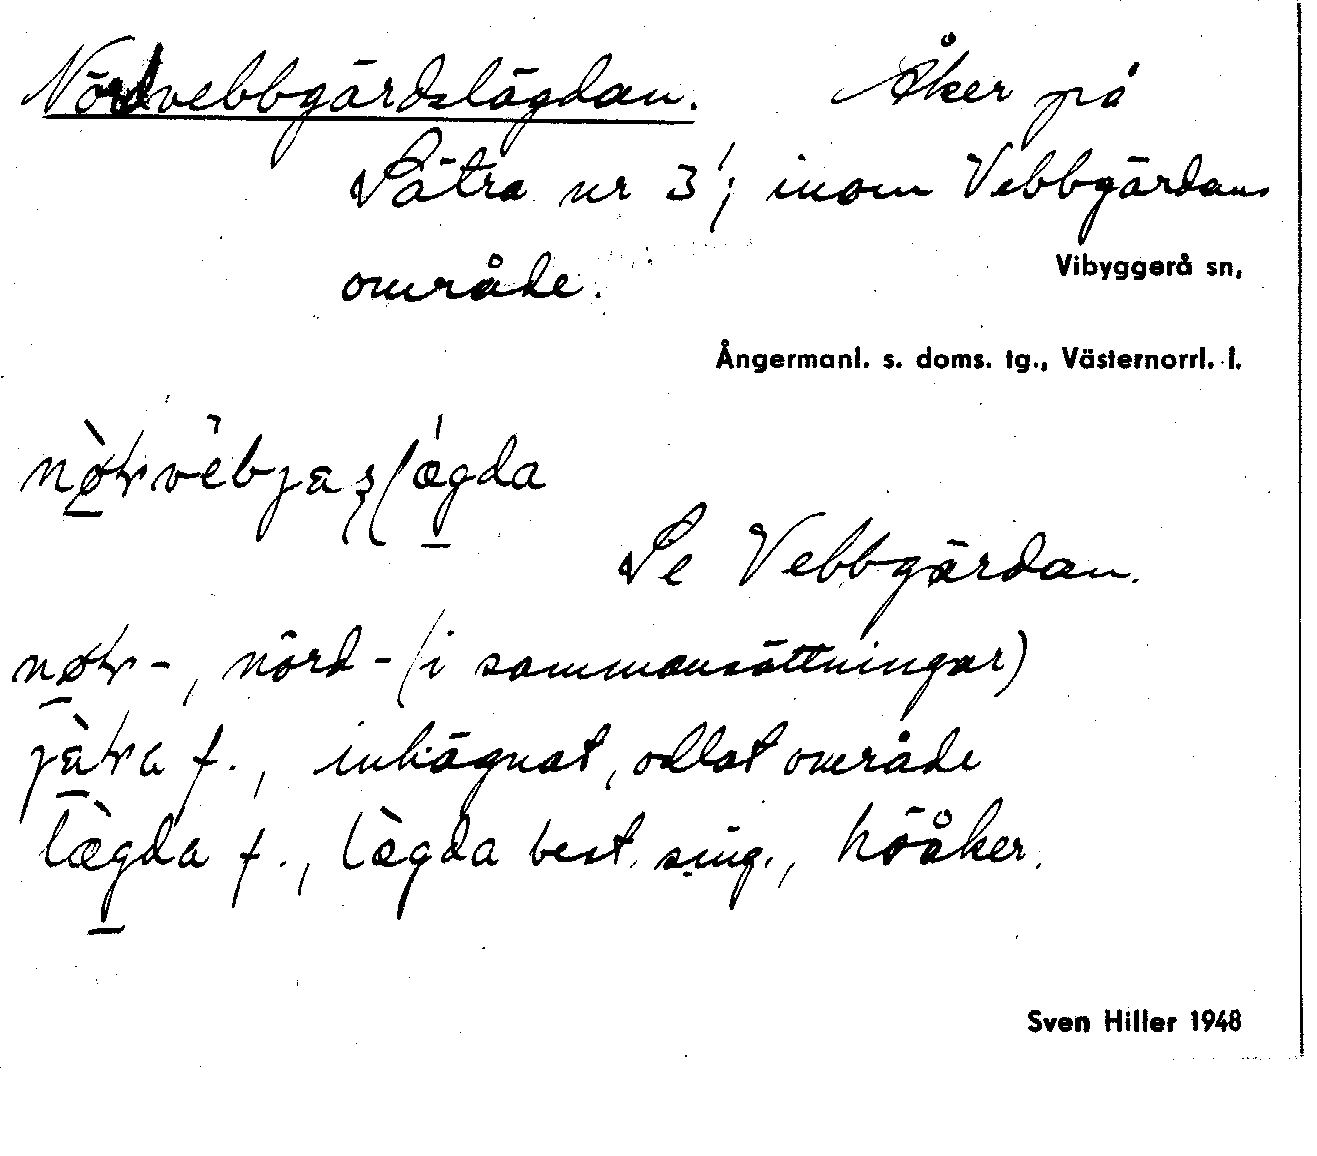 Nördvebbgärdslägdan. Åker på
Sätra nr 3¹; inom Vebbgärdans
område.
Vibyggerå sn,
Ångermanl. s. doms. tg., Västernorrl. l.
Se Vebbgärdan.
nörd- (i sammansättningar)
f., inhägnat, odlat område
lægda f., lægda best. sing., höåker.
Sven Hiller 1948